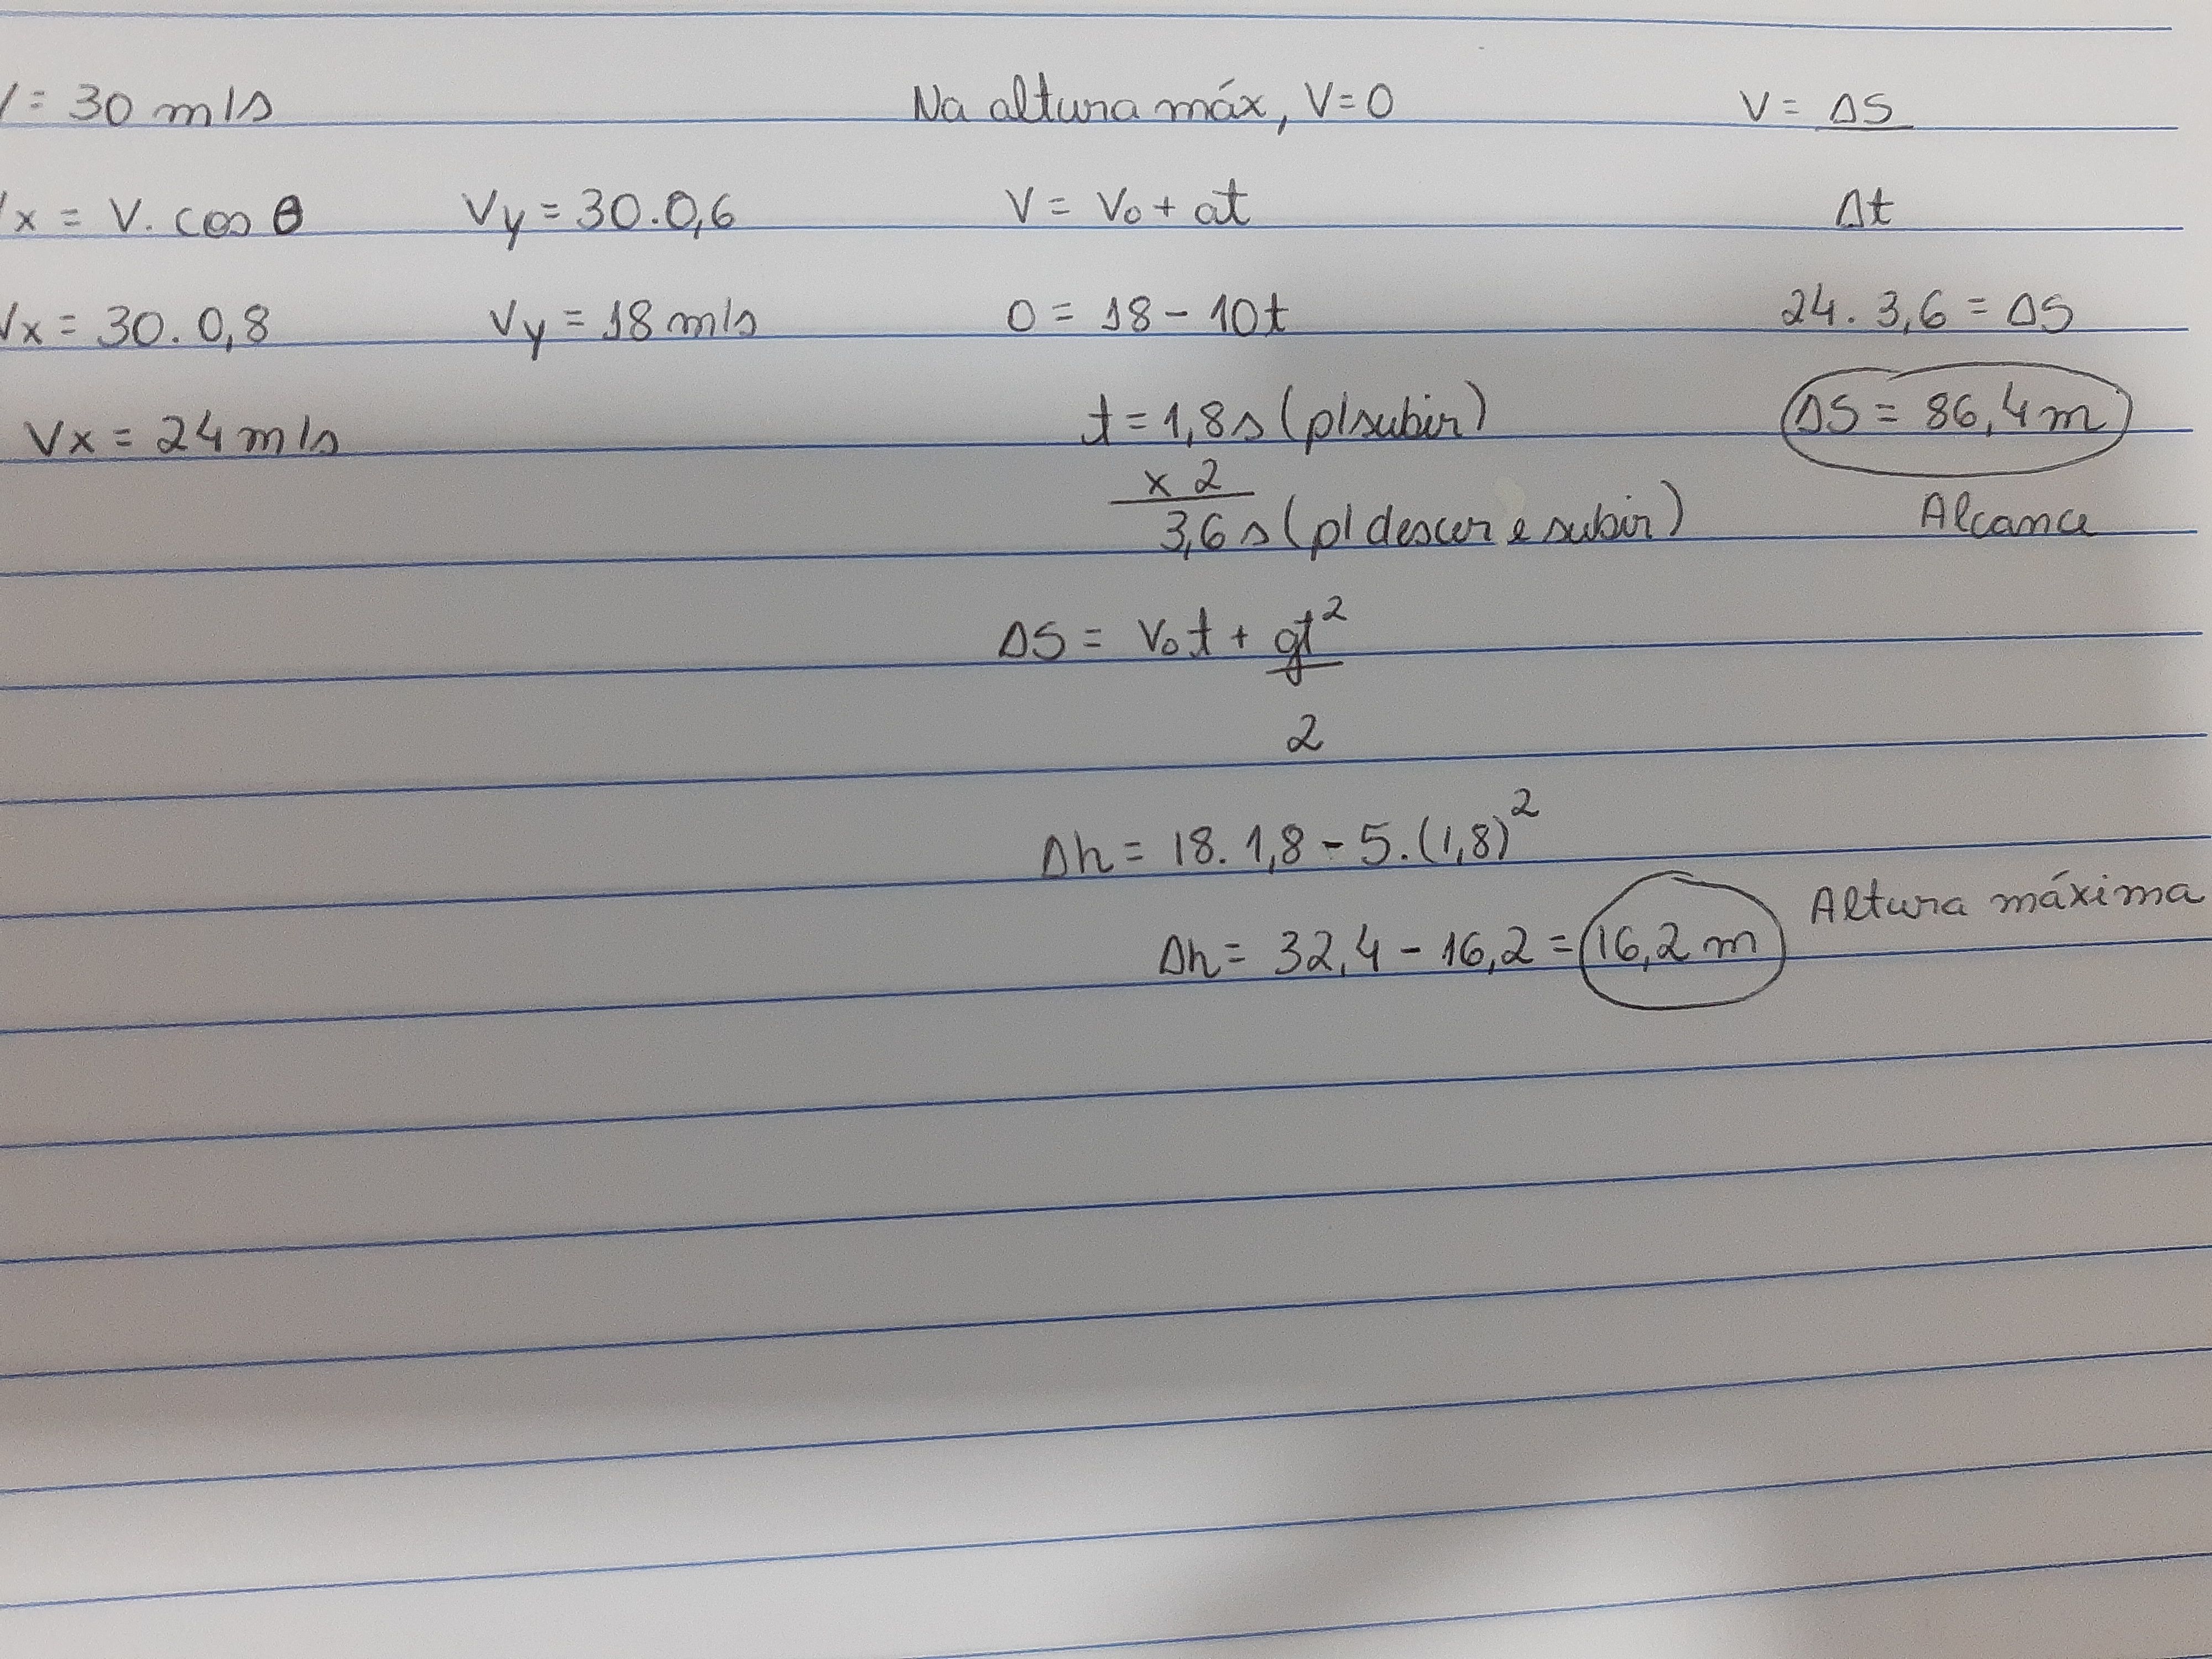 V = 30 m/s
Vx = V. cos θ
Vx = 30. 0,8
Vx = 24 m/s
Vy = 30.0,6
Vy = 18 m/s
Na altura máx, V=0
V = Vo + at
0 = 18 - 10t
t = 1,8 s (p/ subir)
x 2
3,6 s (p/ descer e subir)
ΔS = Vot + gt²
2
Δh = 18. 1,8 - 5. (1,8)²
Δh = 32,4 - 16,2 = 16,2 m
Altura máxima
V = ΔS
Δt
24. 3,6 = ΔS
ΔS = 86,4 m
Alcance